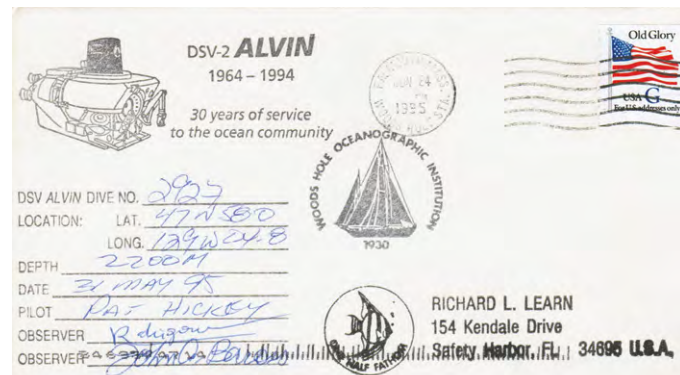 DSV-2 ALVIN
1964 – 1994
30 years of service
to the ocean community
JUN 24
1995
Old Glory
USA G
For U.S. addresses only
WOODS HOLE OCEANOGRAPHIC INSTITUTION
1930
DSV ALVIN DIVE NO. 2927
LOCATION: LAT. 47N 58.0
LONG. 129W 04.8
DEPTH 2200M
DATE 31 MAY 95
PILOT PAT HICKEY
OBSERVER
OBSERVER John
ONE HALF FATHOM
RICHARD L. LEARN
154 Kendale Drive
Safety Harbor, FL 34695 U.S.A.